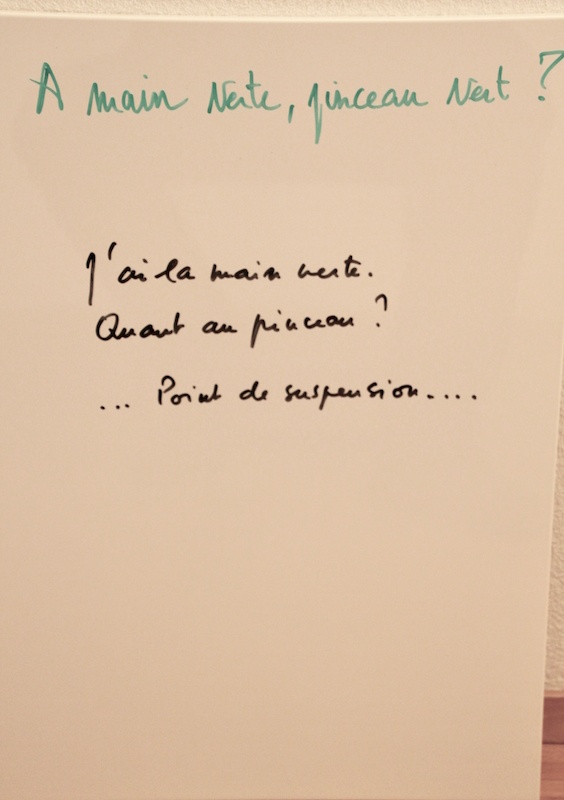 A main verte, pinceau vert ?
J'ai la main verte.
Quant au pinceau ?
... Point de suspension....